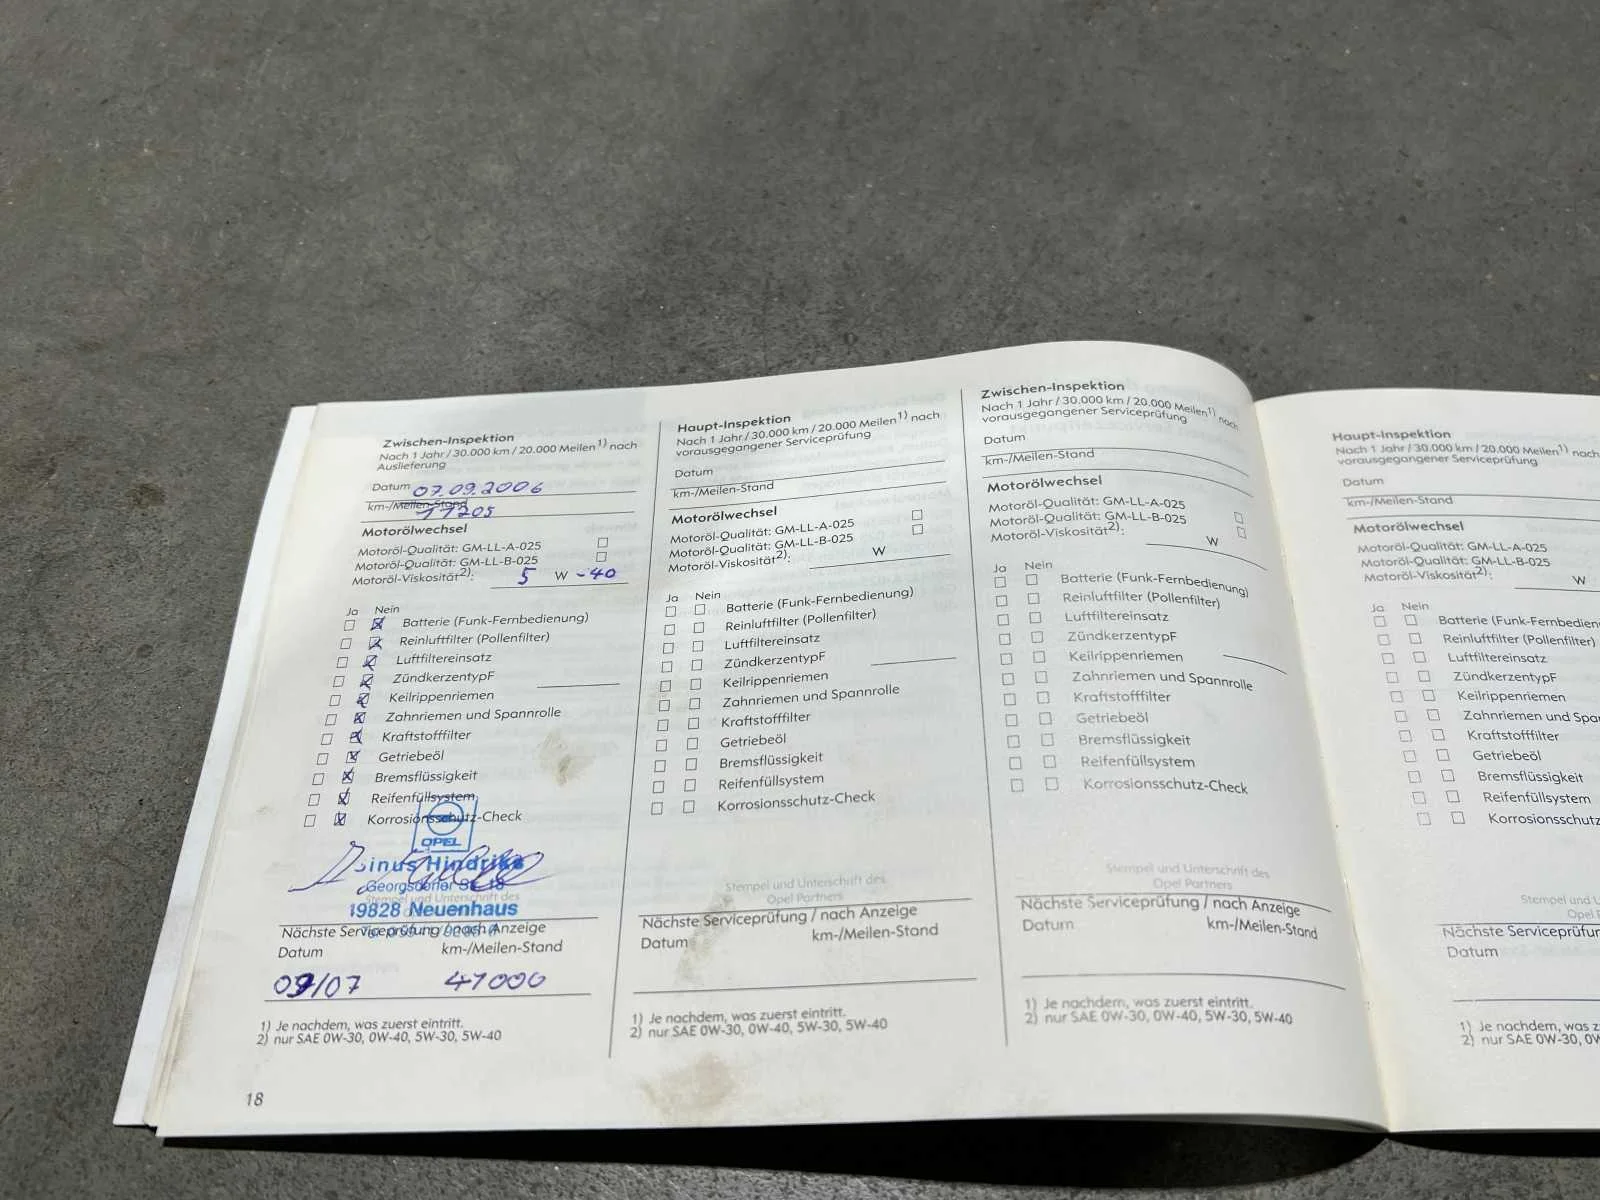 Zwischen-Inspektion
Nach 1 Jahr / 30.000 km / 20.000 Meilen1) nach
Auslieferung
Datum 07.09.2006
km-/Meilen-Stand
11205
Motorölwechsel
Motoröl-Qualität: GM-LL-A-025
Motoröl-Qualität: GM-LL-B-025
Motoröl-Viskosität2): 5 W -40
Ja Nein
Batterie (Funk-Fernbedienung)
Reinluftfilter (Pollenfilter)
Luftfiltereinsatz
ZündkerzentypF
Keilrippenriemen
Zahnriemen und Spannrolle
Kraftstofffilter
Getriebeöl
Bremsflüssigkeit
Reifenfüllsystem
Korrosionsschutz-Check
OPEL
Hindriks
Georgsdorfer
Stempel und Unterschrift des
Neuenhaus
Nächste Serviceprüfung / nach Anzeige
Datum km-/Meilen-Stand
09/07 41000
1) Je nachdem, was zuerst eintritt.
2) nur SAE 0W-30, 0W-40, 5W-30, 5W-40
18
Haupt-Inspektion
Nach 1 Jahr / 30.000 km / 20.000 Meilen1) nach
vorausgegangener Serviceprüfung
Datum
km-/Meilen-Stand
Motorölwechsel
Motoröl-Qualität: GM-LL-A-025
Motoröl-Qualität: GM-LL-B-025
Motoröl-Viskosität2): W
Ja Nein
Batterie (Funk-Fernbedienung)
Reinluftfilter (Pollenfilter)
Luftfiltereinsatz
ZündkerzentypF
Keilrippenriemen
Zahnriemen und Spannrolle
Kraftstofffilter
Getriebeöl
Bremsflüssigkeit
Reifenfüllsystem
Korrosionsschutz-Check
Stempel und Unterschrift des
Opel Partners
Nächste Serviceprüfung / nach Anzeige
Datum km-/Meilen-Stand
1) Je nachdem, was zuerst eintritt.
2) nur SAE 0W-30, 0W-40, 5W-30, 5W-40
Zwischen-Inspektion
Nach 1 Jahr / 30.000 km / 20.000 Meilen1) nach
vorausgegangener Serviceprüfung
Datum
km-/Meilen-Stand
Motorölwechsel
Motoröl-Qualität: GM-LL-A-025
Motoröl-Qualität: GM-LL-B-025
Motoröl-Viskosität2): W
Ja Nein
Batterie (Funk-Fernbedienung)
Reinluftfilter (Pollenfilter)
Luftfiltereinsatz
ZündkerzentypF
Keilrippenriemen
Zahnriemen und Spannrolle
Kraftstofffilter
Getriebeöl
Bremsflüssigkeit
Reifenfüllsystem
Korrosionsschutz-Check
Stempel und Unterschrift des
Opel Partners
Nächste Serviceprüfung / nach Anzeige
Datum km-/Meilen-Stand
1) Je nachdem, was zuerst eintritt.
2) nur SAE 0W-30, 0W-40, 5W-30, 5W-40
Haupt-Inspektion
Nach 1 Jahr / 30.000 km / 20.000 Meilen1) nach
vorausgegangener Serviceprüfung
Datum
km-/Meilen-Stand
Motorölwechsel
Motoröl-Qualität: GM-LL-A-025
Motoröl-Qualität: GM-LL-B-025
Motoröl-Viskosität2): W
Ja Nein
Batterie (Funk-Fernbedien
Reinluftfilter (Pollenfilter)
Luftfiltereinsatz
ZündkerzentypF
Keilrippenriemen
Zahnriemen und Spa
Kraftstofffilter
Getriebeöl
Bremsflüssigkeit
Reifenfüllsystem
Korrosionsschutz
Stempel und U
Opel
Nächste Serviceprüfu
Datum
1) Je nachdem, was z
2) nur SAE 0W-30, 0W